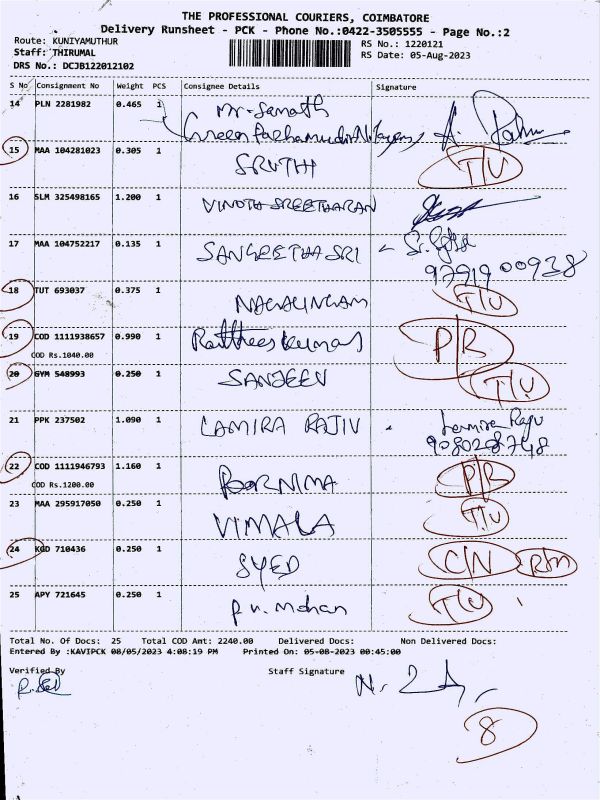 THE PROFESSIONAL COURIERS, COIMBATORE
Delivery Runsheet - PCK - Phone No.:0422-3505555 - Page No.:2
Route: KUNIYAMUTHUR
RS No.: 1220121
Staff: THIRUMAL
RS Date: 05-Aug-2023
DRS No.: DCJB122012102
S No Consignment No Weight PCS Consignee Details Signature
14 PLN 2281982 0.465 1 Mr. Samath
15 MAA 104281023 0.305 1 SRUTHI T/U
16 SLM 325498165 1.200 1 VINOTH SREETHARAN
17 MAA 104752217 0.135 1 SANGEETHA SRI
97919 00938
18 TUT 693037 0.375 1 NAGALINGAM T/U
19 COD 1111938657 0.990 1 Ratthees Kumar P/R
COD Rs.1040.00
20 GYM 548993 0.250 1 SANJEEV T/U
21 PPK 237502 1.090 1 LAMIRA RAJIV Lamira Raju
9080228748
22 COD 1111946793 1.160 1 POORNIMA P/R
COD Rs.1200.00
23 MAA 295917050 0.250 1 VIMALA T/U
24 KGD 710436 0.250 1 SYED C/N R/N
25 APY 721645 0.250 1 P.V. Mohan T/U
Total No. Of Docs: 25 Total COD Amt: 2240.00 Delivered Docs: Non Delivered Docs:
Entered By :KAVIPCK 08/05/2023 4:08:19 PM Printed On: 05-08-2023 00:45:00
Verified By Staff Signature
8